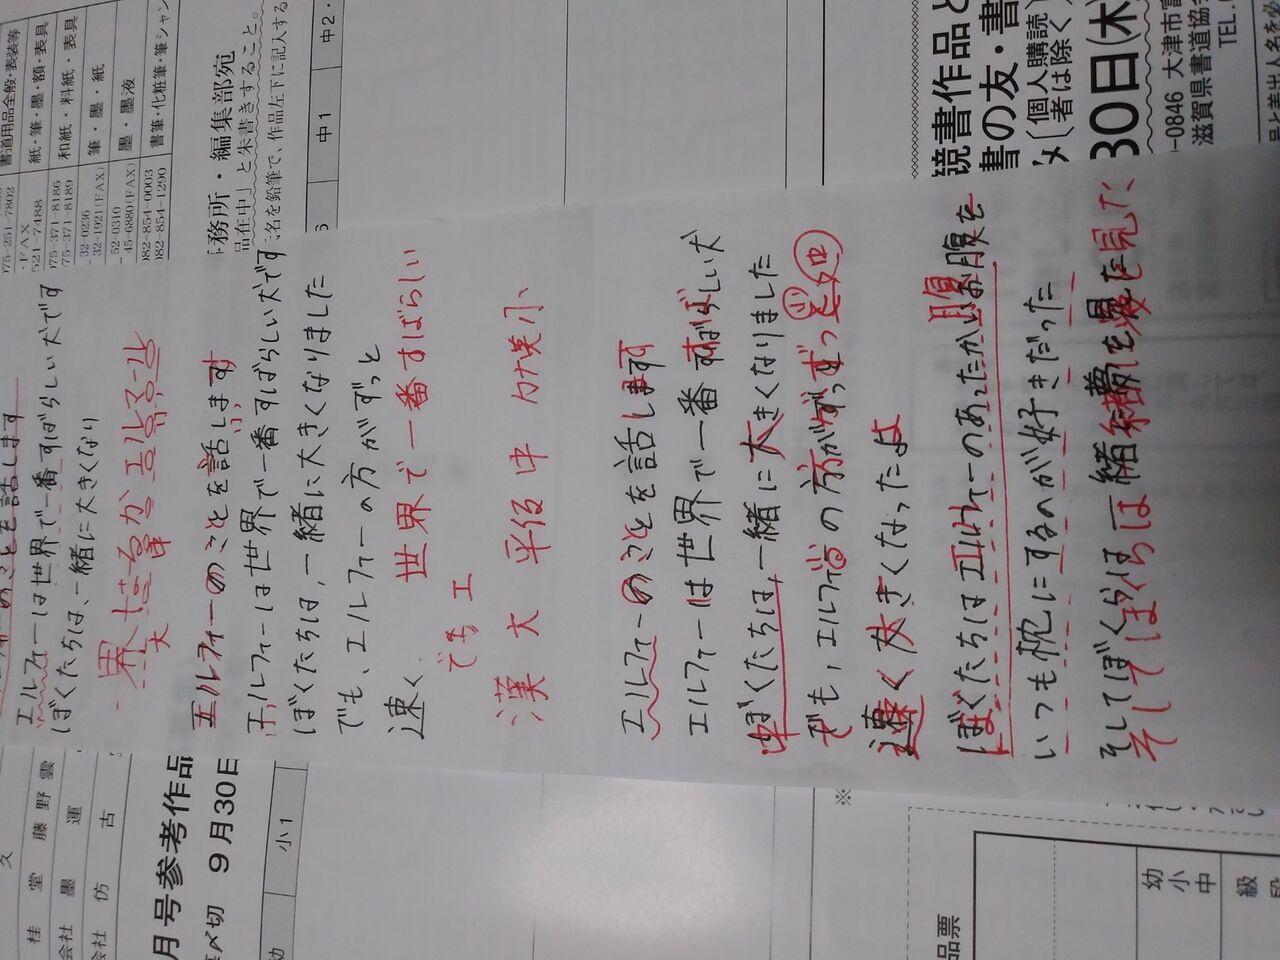 エルフィーは世界で一番すばらしい犬です
ぼくたちは、一緒に大きくなり
エルフィーのことを話します
エルフィーは世界で一番すばらしい犬です
ぼくたちは、一緒に大きくなりました
でも、エルフィーの方がずっと
速く
世界で一番すばらしい
でも エ
漢 大 平仮 中 カタ英 小
エルフィーのことを話します
エルフィーは世界で一番すばらしい犬
ぼくたちは、一緒に大きくなりました
でも、エルフィーの方がずっっと
小
中
速く大きくなったよ
ぼくたちはエルフィーのあったかいお腹を
腹
いつも枕にするのが好きだった
そしてぼくらは一緒に夢を見た
そしてぼくらは一緒に夢を見た
書道用品全般・表装等
紙・筆・墨・額・表具
和紙・料紙・表具
筆・墨・紙
墨・墨液
075-251-7802
521-7488
075-371-8186
75-371-8189
32-0236
32-1921(FAX)
52-0310
45-6880(FAX)
082-854-0003
82-854-1290
務所・編集部宛
品在中」と朱書きすること。
名を鉛筆で、作品左下に記入する
中1
中2・
鏡書作品と
書の友・書
(個人購読者は除く)
30日(木)
-0846 大津市富
滋賀県書道協会
TEL.
月号参考作品
〆切 9月30日
小1
幼
桂堂 藤野雲
会社 墨運
会社 仿古
※
品票
幼小中
級
段